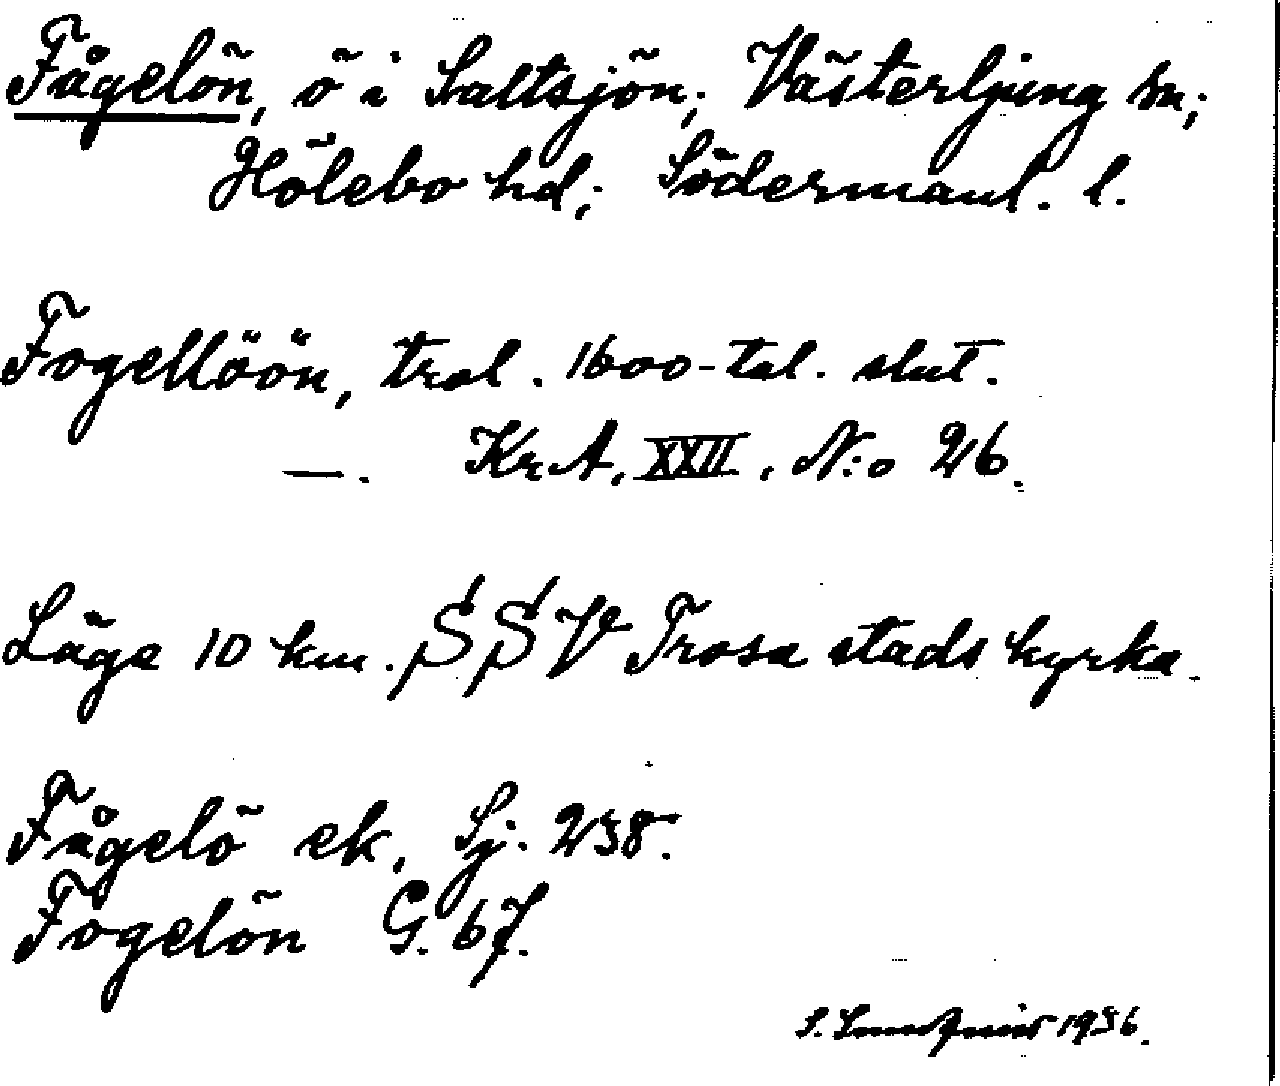 Fågelön, ö i Saltsjön; Västerljung sn;
Hölebo hd; Södermanl. l.
Fogellöön, trol. 1600-tal. slut.
—. Kr. A, XXII, N:o 26.
Läge 10 km. SSV Trosa stads kyrka.
Fågelö ek, Sj. 238.
Fogelön G. 67.
S. 1936.